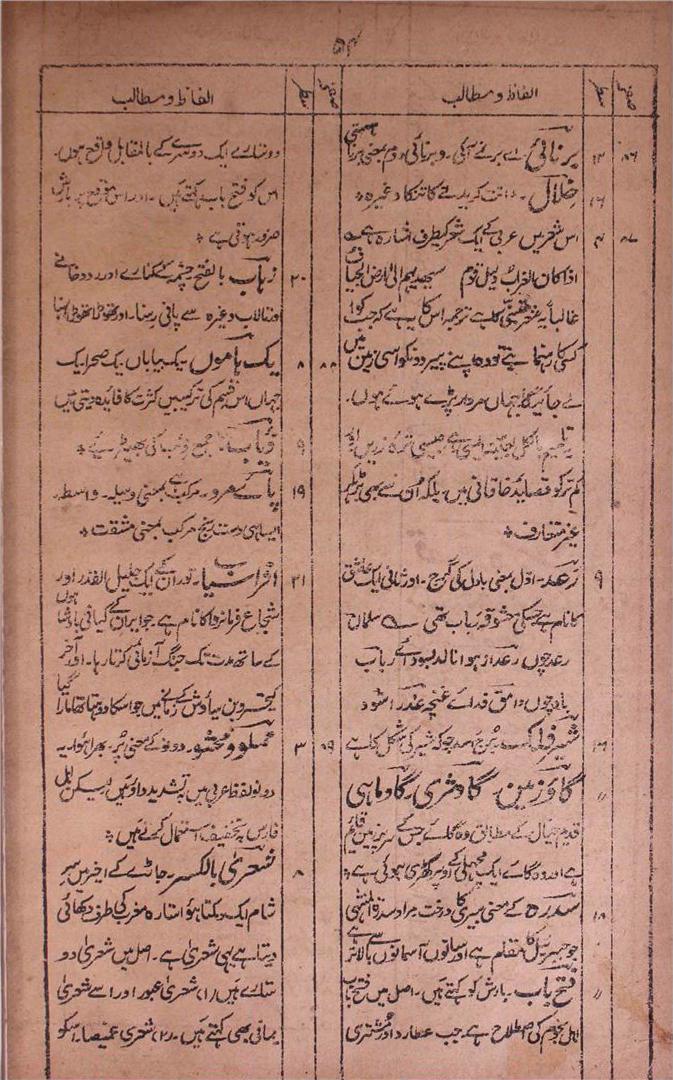 ۵۴
صفحہ سطر الفاظ و مطالب
۸۶ ۱۳ برنائی
۱۶ خلال۔ دانت کریدنے کا تنکا وغیرہ ٭
۸۷ ۴ اس شعر میں عربی کے ایک شعر کیطرف اشارہ ہے
اذا کان الغراب دلیل قوم سیهدیهم الی ارض الجیاف
غالباً یہ شعر کا ہے ترجمہ اس کا یہ ہے کہ جب کوا
کسی کا رہنما بنے تو وہ اپنے پیرووں کو اسی زمین میں
لے جائیگا جہاں مردار پڑے ہوئے ہوں۔
کم تر کو قصاید خاقانی میں۔ بلکہ اُن سے بھی بڑہکر
غیر متعارف ٭
۹ رعد۔ اول بمعنی بادل کی گرج۔ اور ثانی ایک عاشق
کا نام ہے جسکی معشوقہ رباب تھی سلمان
رعد چوں رعد از ہوا نالد لبودائے رباب
باد چوں وامق فدائے غنچہ عذرا شود
۱۶ شیر فلک۔ برج اسد جو کہ شیر کی شکل کا ہے
〃 گاؤ زمین۔ گاو ثری۔ گاو ماہی
قدیم خیال کے مطابق وہ گائے جس کے سر پر زمین قائم
ہے اور وہ گائے ایک مچھلی کے اوپر کھڑی ہوئی ہے ٭
۱۸ سدرہ کے معنی بیری کا درخت مراد سدرۃ المنتہی
جو جبرئیل کا مقام ہے اور ساتوں آسمانوں سے بالاتر ہے
〃 فتح باب۔ بارش کو کہتے ہیں۔ اصل میں فتح باب
اہل نجوم کی اصطلاح ہے۔ جب عطارد اور مشتری
صفحہ سطر الفاظ و مطالب
دو ستارے ایک دوسرے کے بالمقابل واقع ہوں۔
اس کو فتح باب کہتے ہیں۔ اور اس موقع پر بارش
ضرور ہوتی ہے ٭
۲۰ زہاب بالفتح چشمہ کے کنارے اور رودخانے
اور تالاب وغیرہ سے پانی رسنا۔ اور تھوڑا تھوڑا بہنا
۸۸ ۸ یک ہاموں یک بیاباں یک صحرا یک
جہاں اس قسم کی ترکیبیں کثرت کا فائدہ دیتی ہیں
۹ ذیاب۔ جمع ذئب کی بھیڑئیے ٭
۱۹ پائے مرد۔ مرکب ہے بمعنی وسیلہ۔ واسطہ۔
ایسا ہی دست رنج مرکب بمعنی مشقت ٭
۲۱ افراسیاب۔ توران کے ایک جلیل القدر اور
شجاع فرمانروا کا نام ہے جو ایران کے کیانی بادشاہوں
کے ساتھ مدت تک جنگ آزمائی کرتا رہا۔ اور آخر
کیخسرو بن سیاوش کے زمانے میں جو اسکا دوہتا تھا مارا گیا
۸۹ ۳ مملو و محشو۔ دونو کے معنی پُر۔ بھرا ہوا۔ یہ
دونو لفظ عربی میں بہ تشدید واؤ ہیں لیکن اہل
فارس بہ تخفیف استعمال کرتے ہیں ٭
۸ شعریٰ بالکسر۔ جاڑے کے اخیر میں سر
شام ایک دمکتا ہوا ستارہ مغرب کی طرف دکھائی
دیتا ہے یہی شعریٰ ہے۔ اصل میں شعریٰ دو
ستارے ہیں (۱) شعریٰ عبور اور اسے شعریٰ
یمانی بھی کہتے ہیں۔ (۲) شعری غمیصا۔ اسکو